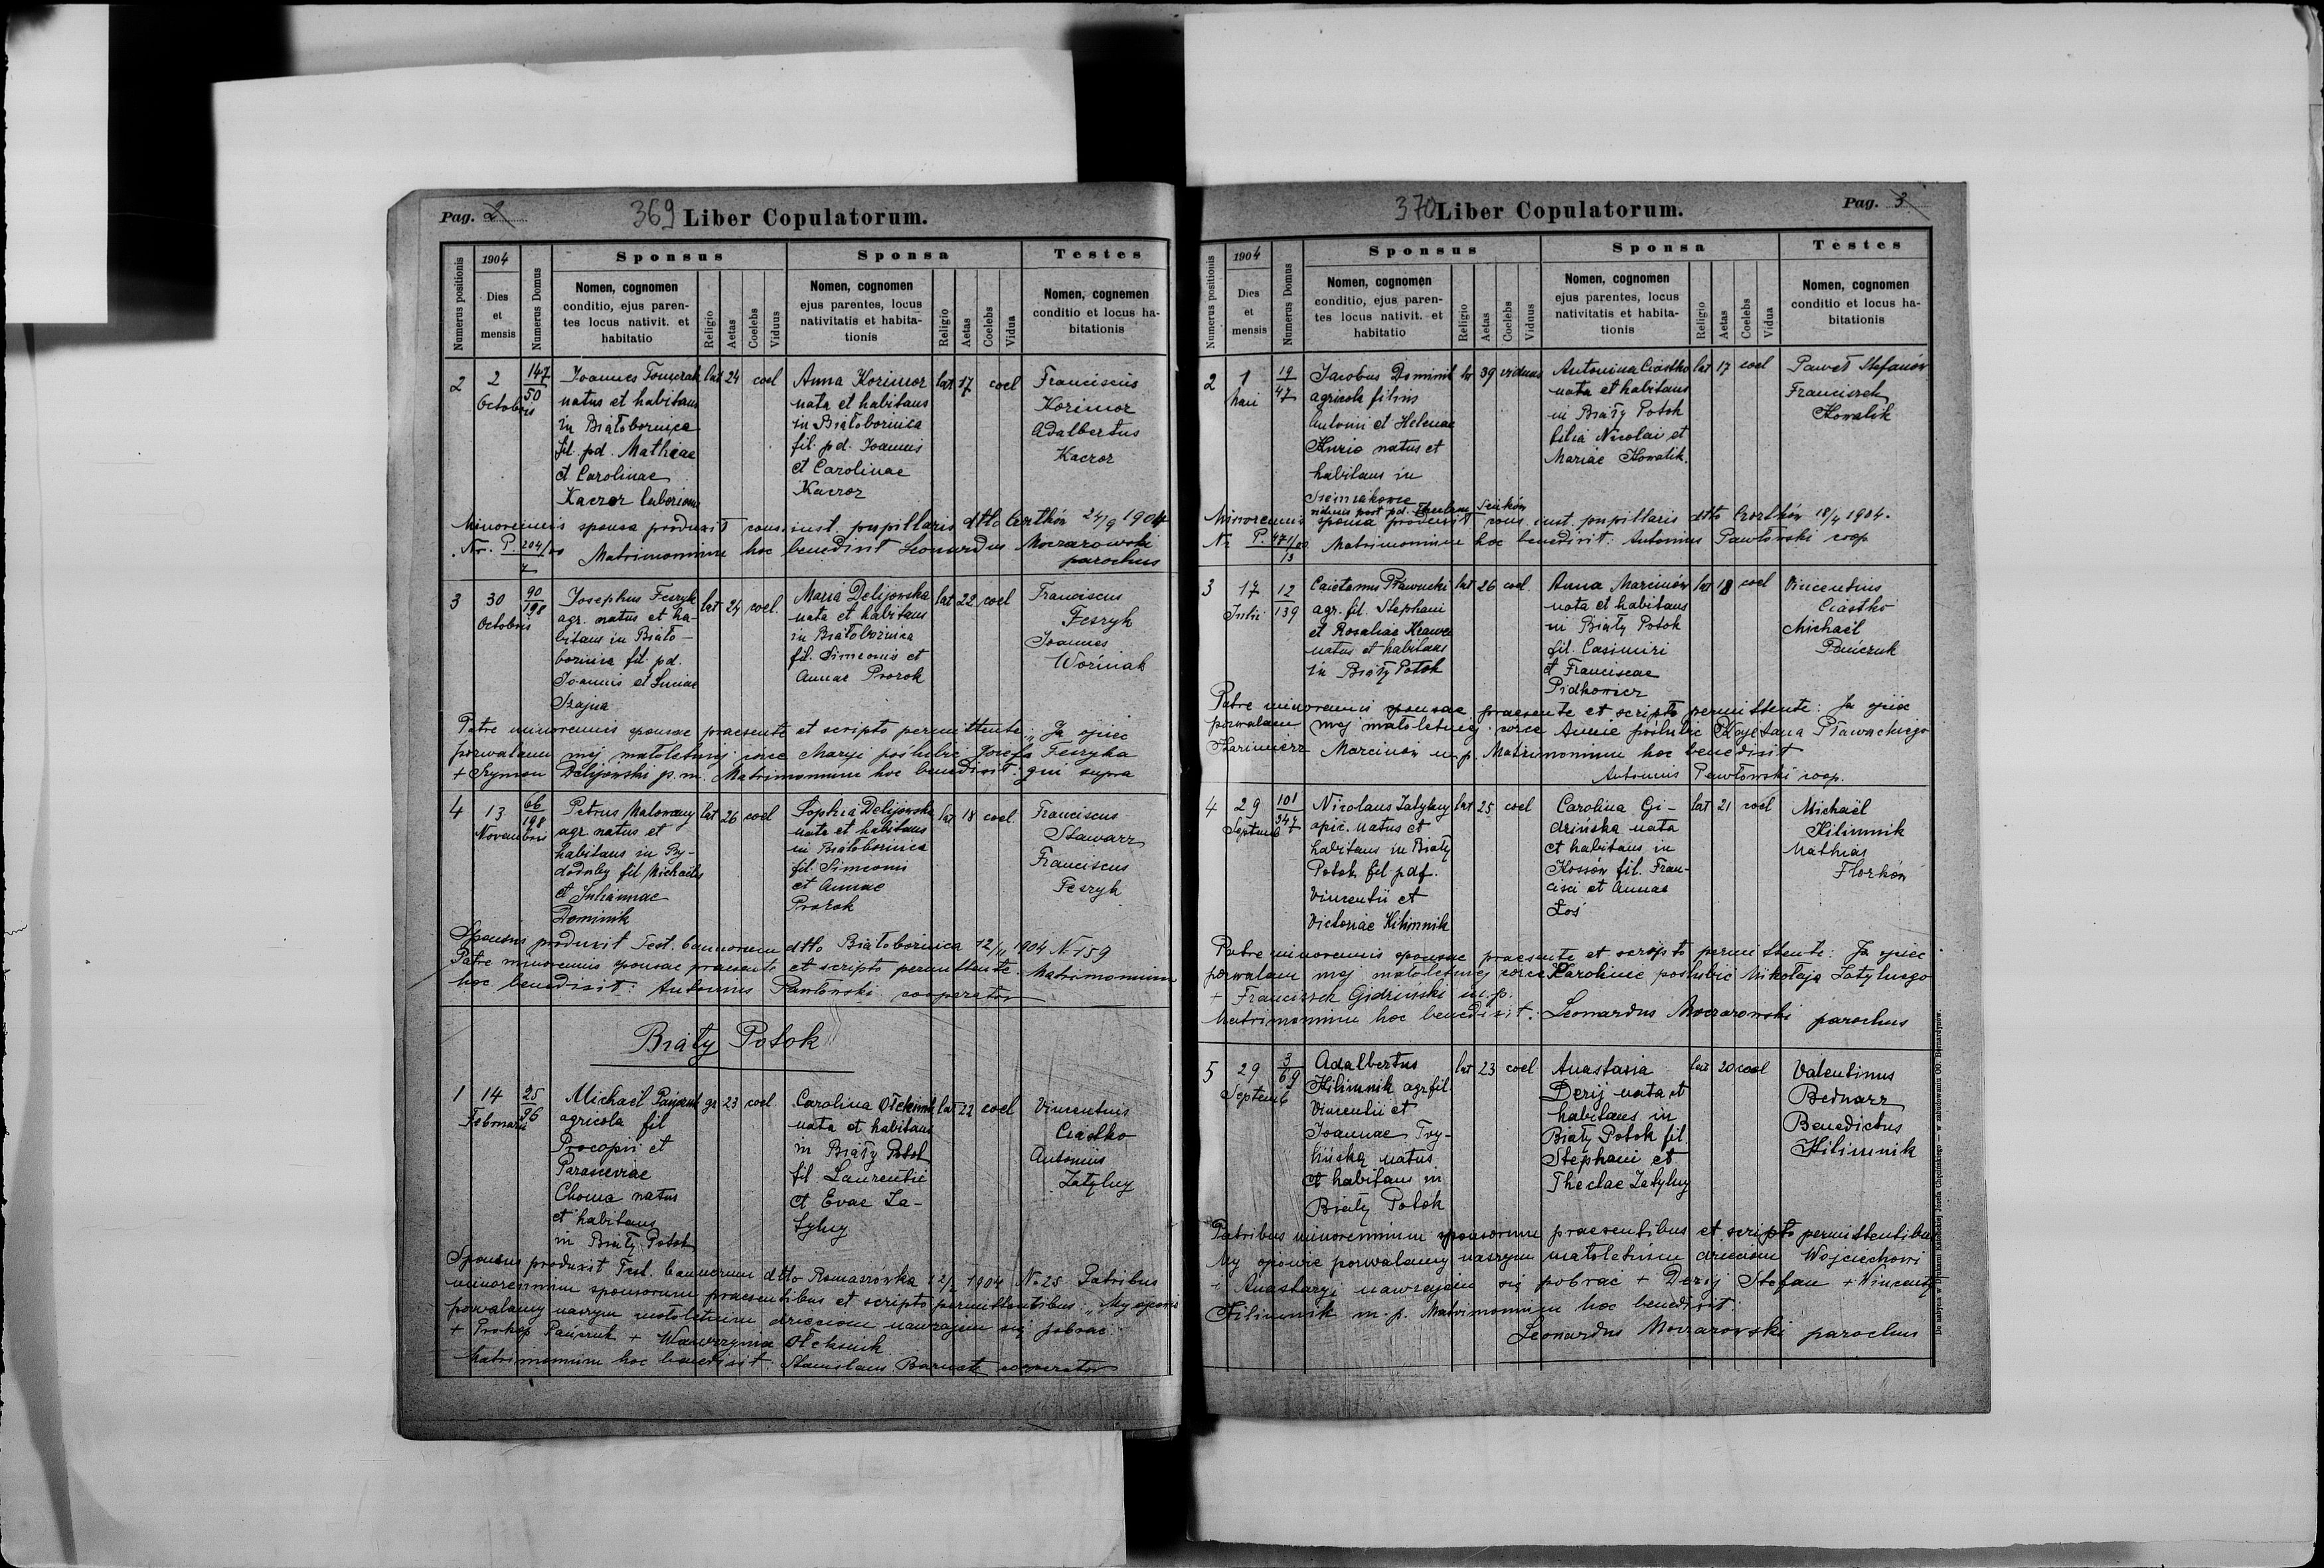 Pag. 2
369 Liber Copulatorum.
Numerus positionis
1904
Dies et mensis
Numerus Domus
Sponsus
Nomen, cognomen
conditio, ejus paren-
tes locus nativit. et
habitatio
Religio
Aetas
Coelebs
Viduus
Sponsa
Nomen, cognomen
ejus parentes, locus
nativitatis et habita-
tionis
Religio
Aetas
Coelebs
Vidua
Testes
Nomen, cognemen
conditio et locus ha-
bitationis
2
2
Octobris
147
50
Joannes Tomczak
natus et habitans
in Białobożnica
fil. pd. Mathiae
et Carolinae
Kaczor
lat 24 coel
Anna Kozimor
nata et habitans
in Białobożnica
fil. pd. Joannis
et Carolinae
Kaczor
lat 17 coel
Franciscus
Kozimor
Adalbertus
Kaczor
Minorennis sponsa produxit cons. inst. pupillaris dtto Czortków 24/9 1904
Nr. P. 204/00
Matrimonium hoc benedixit Leonardus Moczarowski
parochus
3
30
Octobris
90
198
Josephus Feszyk
agr. natus et ha-
bitans in Biało-
bożnica fil. pd.
Joannis et Luciae
Szajna
lat 24 coel.
Maria Delijowska
nata et habitans
in Białobożnica
fil. Simeonis et
Annae Prorok
lat 22 coel
Franciscus
Feszyk
Joannes
Woźniak
Patre minorennis sponsae praesente et scripto permittente: „Ja ojciec
pozwalam mej małoletniej córce Maryi poślubić Józefa Feszyka
+ Szymon Delijowski p.m. Matrimonium hoc benedixit: qui supra
4
13
Novembris
66
198
Petrus Malowany
agr. natus et
habitans in By-
dodnby fil Michaelis
et Juliannae
Dominik
lat 26 coel
Sophia Delijowska
nata et habitans
in Białobożnica
fil. Simeonis
et Annae
Prorok
lat 18 coel.
Franciscus
Stawarz
Franciscus
Feszyk
Sponsus produxit Test. bannorum dtto Białobożnica 12/11 1904 N. 159
Patre minorennis sponsae praesente et scripto permittente. Matrimonium
hoc benedixit: Antonius Pawłowski cooperator
Biały Potok
1
14
Februarii
25
96
Michael Pańczuk
agricola fil
Procopii et
Parascevae
Choma natus
et habitans
in Biały Potok
gr 23 coel.
Carolina Ołeksiuk
nata et habitans
in Biały Potok
fil Laurentii
et Evae Za-
tylny
lat 22 coel
Vincentius
Ciastko
Antonius
Zatylny
Sponsus produxit Test. bannorum dtto Romaszówka 12/2 1904 No 25 Patribus
minorennium sponsorum praesentibus et scripto permittentibus: „My ojcowie
pozwalamy naszym małoletnim dzieciom nawzajem się pobrać
+ Prokop Pańczuk + Wawrzyniec Ołeksiuk
Matrimonium hoc benedixit: Stanislaus cooperator
370 Liber Copulatorum.
Pag. 3
Numerus positionis
1904
Dies et mensis
Numerus Domus
Sponsus
Nomen, cognomen
conditio, ejus paren-
tes locus nativit. et
habitatio
Religio
Aetas
Coelebs
Viduus
Sponsa
Nomen, cognomen
ejus parentes, locus
nativitatis et habita-
tionis
Religio
Aetas
Coelebs
Vidua
Testes
Nomen, cognomen
conditio et locus ha-
bitationis
2
1
Maii
19
47
Jacobus Dominik
agricola filius
Antonii et Helenae
Kurio natus et
habitans in
Siemiakowce
viduus post pd. Senków
lat 39 viduus
Antonina Ciastko
nata et habitans
in Biały Potok
filia Nicolai et
Mariae Kowalik.
lat 17 coel
Paweł Stefanów
Franciszek
Kowalik
Minorennis sponsa produxit cons. inst. pupillaris dtto Czortków 18/4 1904.
Nr P. 471/00
13
Matrimonium hoc benedixit: Antonius Pawłowski coop
3
17
Julii
12
139
Caietanus Pławucki
agr. fil. Stephani
et Rosaliae Krawec
natus et habitans
in Biały Potok
lat 26 coel.
Anna Marcinów
nata et habitans
in Biały Potok
fil. Casimiri
et Franciscae
Pidhowicz
lat 18 coel
Vincentius
Ciastko
Michael
Pańczuk
Patre minorennis sponsae praesente et scripto permittente: Ja ojciec
pozwalam mej małoletniej córce Annie poślubić Kajetana Pławuckiego
Kazimierz Marcinów m.p. Matrimonium hoc benedixit
Antonius Pawłowski coop.
4
29
Septemb
101
347
Nicolaus Zatylny
opif. natus et
habitans in Biały
Potok fil pdf.
Vincentii et
Victoriae Hilimnik
lat 25 coel
Carolina Gi-
dzińska nata
et habitans in
Kossów fil. Fran-
cisci et Annae
Łoś
lat 21 coel
Michael
Hilimnik
Mathias
Florków
Patre minorennis sponsae praesente et scripto permittente: Ja ojciec
pozwalam mej małoletniej córce Karolinie poślubić Mikołaja Zatylnego
+ Franciszek Gidziński m.p.
Matrimonium hoc benedixit: Leonardus Moczarowski parochus
5
29
Septemb
3
69
Adalbertus
Hilimnik agr fil
Vincentii et
Joannae Try-
hińska natus
et habitans in
Biały Potok
lat 23 coel
Anastasia
Derij nata et
habitans in
Biały Potok fil
Stephani et
Theclae Zatylny
lat 20 coel
Valentinus
Bednarz
Benedictus
Hilimnik
Patribus minorennium sponsorum praesentibus et scripto permittentibus
My ojcowie pozwalamy naszym małoletnim dzieciom Wojciechowi
i Anastazyi nawzajem się pobrać + Derij Stefan + Wincenty
Hilimnik m.p. Matrimonium hoc benedixit:
Leonardus Moczarowski parochus
Do nabycia w Drukarni Katolickiej Józefa Chęcińskiego — w zabudowaniu OO. Bernardynów.